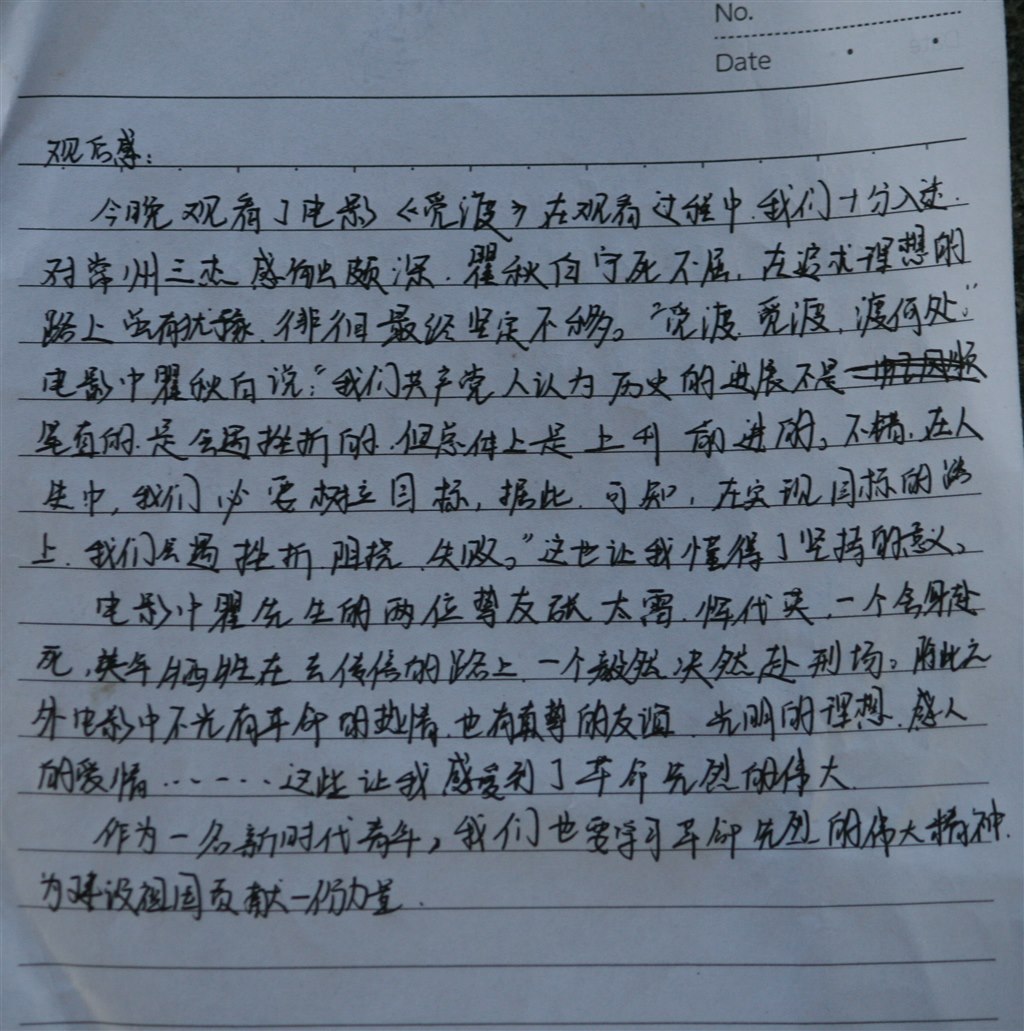 No.
Date
观后感:
今晚观看了电影《觅渡》在观看过程中.我们十分入迷.
对常州三杰感触颇深.瞿秋白宁死不屈,在追求理想的
路上虽有犹豫.徘徊最终坚定不移。"觅渡.觅渡,渡何处."
电影中瞿秋白说:"我们共产党人认为历史的进展不是
笔直的.是会遇挫折的.但总体上是上升前进的。不错.在人
生中,我们必要树立目标,据此.可知,在实现目标的路
上.我们会遇挫折.阻挠.失败。"这也让我懂得了坚持的意义。
电影中瞿先生的两位挚友张太雷.恽代英,一个舍身赴
死,英年牺牲在去传信的路上.一个毅然决然赴刑场。除此之
外电影中不光有革命的热情.也有真挚的友谊.光明的理想.感人
的爱情……这些让我感受到了革命先烈的伟大.
作为一名新时代青年,我们也要学习革命先烈的伟大精神.
为建设祖国贡献一份力量.